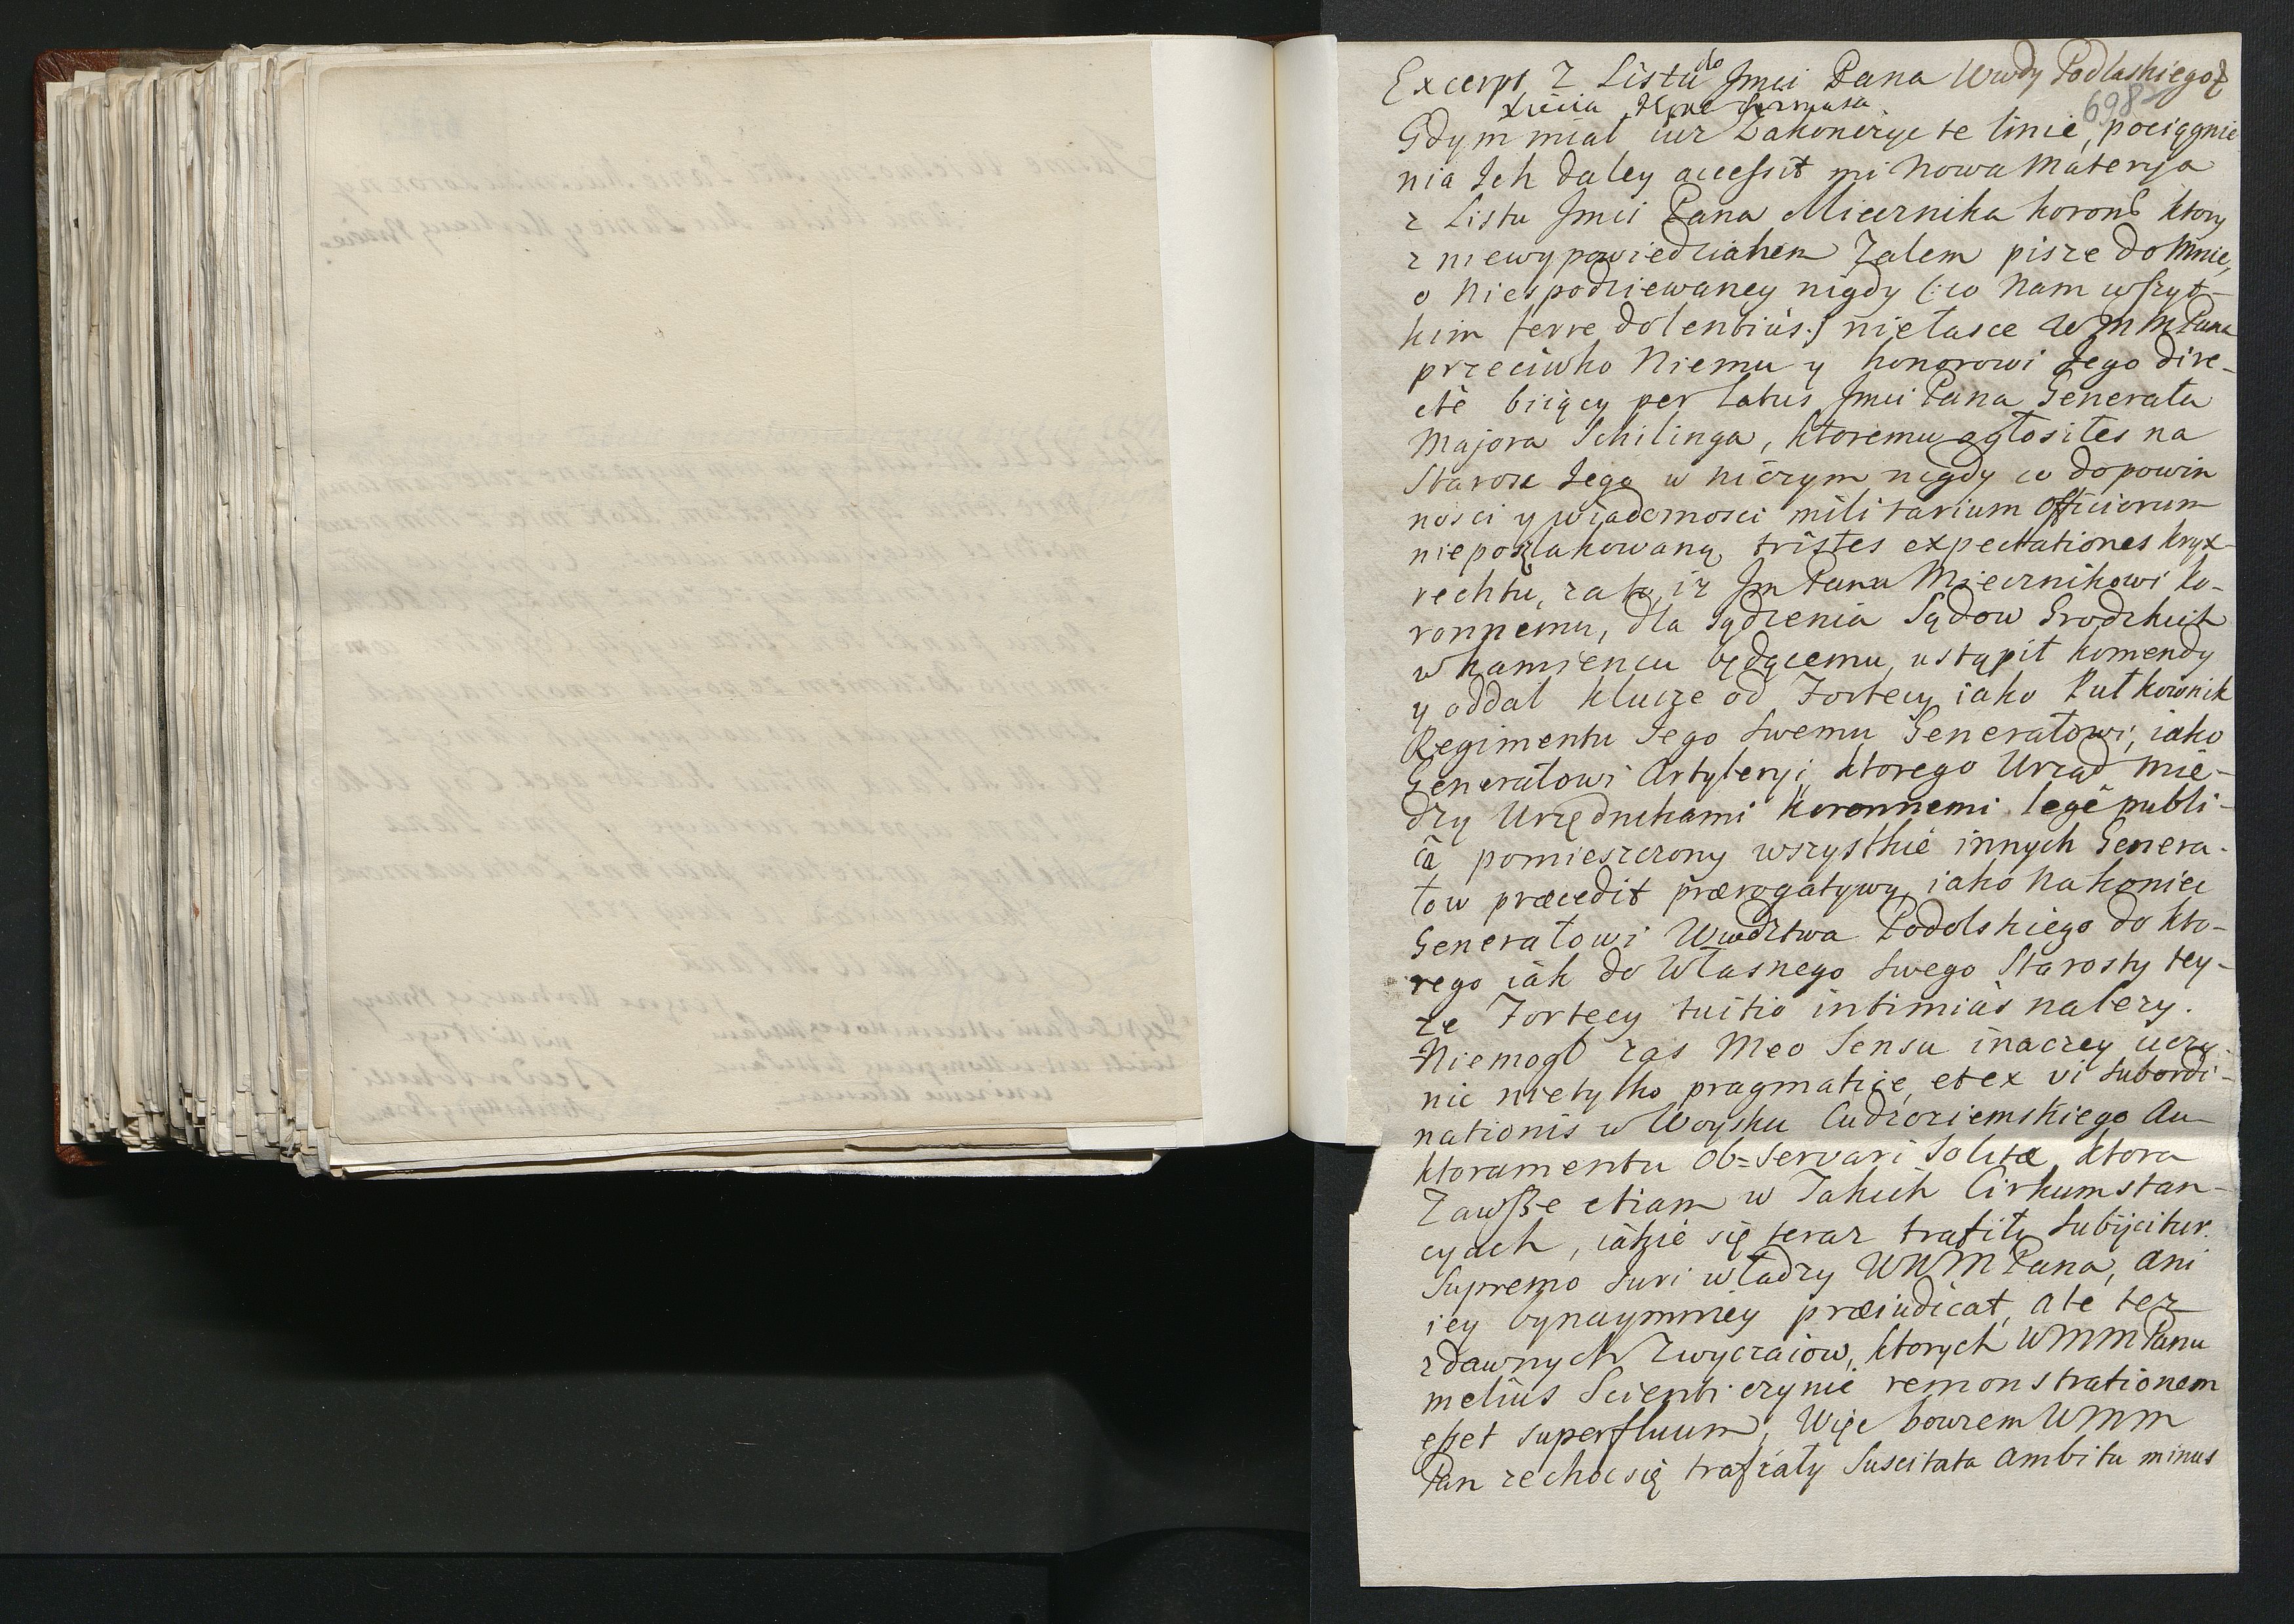 Excerpt Z Listu do Jmci Pana Wwdy Podlaskiego
698
Gdym miał iuż Zakończyć te linie, pociągnie
nia Ich daley accessit mi Nowa Materyja
z Listu Jmci Pana Miecznika koronł ktory
z niewypowiedzianem Zalem pisze do Mnie,
o Niespodziewaney nigdy (:co Nam wszyt-
kim ferre dolentius:) niełasce WMMPana
przeciwko Niemu y honorowi Jego dire-
cte biiący per latus Jmci Pana Generała
Majora Schilinga, ktoremu ogłosiłes na
Starosc Jego w niczym nigdy co do powin
nosci y wiadomosci militarium officiorum
nieposzlakowaną, tristes expectationes kryx-
rechtu, za to, iż Jm Panu Miecznikowi ko-
ronnemu, dla sądzenia Sądow Grodzkich
w kamiencu będącemu, ustąpił komendy
y oddał klucze od Fortecy iako Pułkownik
Regimentu Jego swemu Generałowi, iako
Generałowi Artyleryi, ktorego Urząd mię-
dzy Urzędnikami koronnemi legê publi-
câ pomieszczony wszystkie innych Genera-
łow præcedit prærogatywy, iako nakoniec
Generałowi Wwdztwa Podolskiego do kto-
rego iak do Własnego swego Starosty tey-
że Fortecy tuitio intimiùs należy.
Niemogł zas Meo Sensu inaczey uczy-
nic nietylko pragmatice, et ex vi subordi-
nationis w Woysku Cudzoziemskiego Au-
ktoramentu Ob=servari Solitæ, ktora
Zawsze etiam w Takich Cirkumstan-
cyach, iakie się teraz trafiły subijcitur
Supremo Juri władzy WWMPana, ani
iey bynaymniey præiudicat, ale tez
z dawnych Zwyczaiow, ktorych WMMPanu
melius Scienti czynić remonstrationem
esset superfluum, Więc bowiem WMM
Pan ze choc się trafiały Suscitata ambitu minus